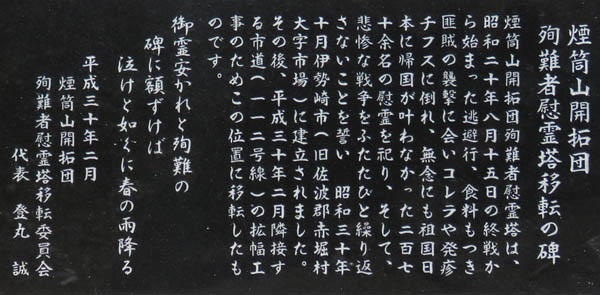 煙筒山開拓団
殉難者慰霊塔移転の碑
煙筒山開拓団殉難者慰霊塔は、
昭和二十年八月十五日の終戦か
ら始まった逃避行、食料もつき
匪賊の襲撃に会いコレラや発疹
チフスに倒れ、無念にも祖国日
本に帰国が叶わなかった二百七
十余名の慰霊を祀り、そして、
悲惨な戦争をふたたびと繰り返
さないことを誓い 昭和三十年
十月伊勢崎市(旧佐波郡赤堀村
大字市場)に建立されました。
その後、平成三十年二月隣接す
る市道(一一二号線)の拡幅工
事のためこの位置に移転したも
のです。
御霊安かれと殉難の
碑に額ずけば
泣けと如くに春の雨降る
平成三十年二月
煙筒山開拓団
殉難者慰霊塔移転委員会
代表 登丸 誠